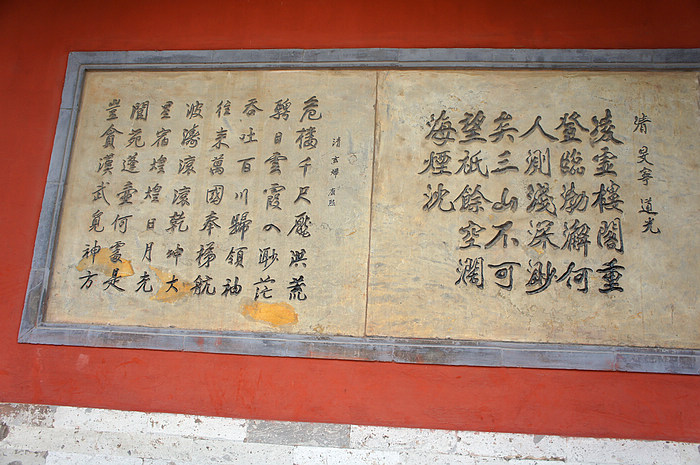 清 旻寧 道光
凌靈樓閣重
登臨渤澥何
人測淺深渺
矣三山不可
望祇餘空濶
海煙沈
清 玄燁 康熙
危樓千尺壓洪荒
騁目雲霞入渺茫
吞吐百川歸領袖
往來萬國奉梯航
波濤滾滾乾坤大
星宿煌煌日月光
閬苑蓬壺何處是
豈貪漢武覓神方